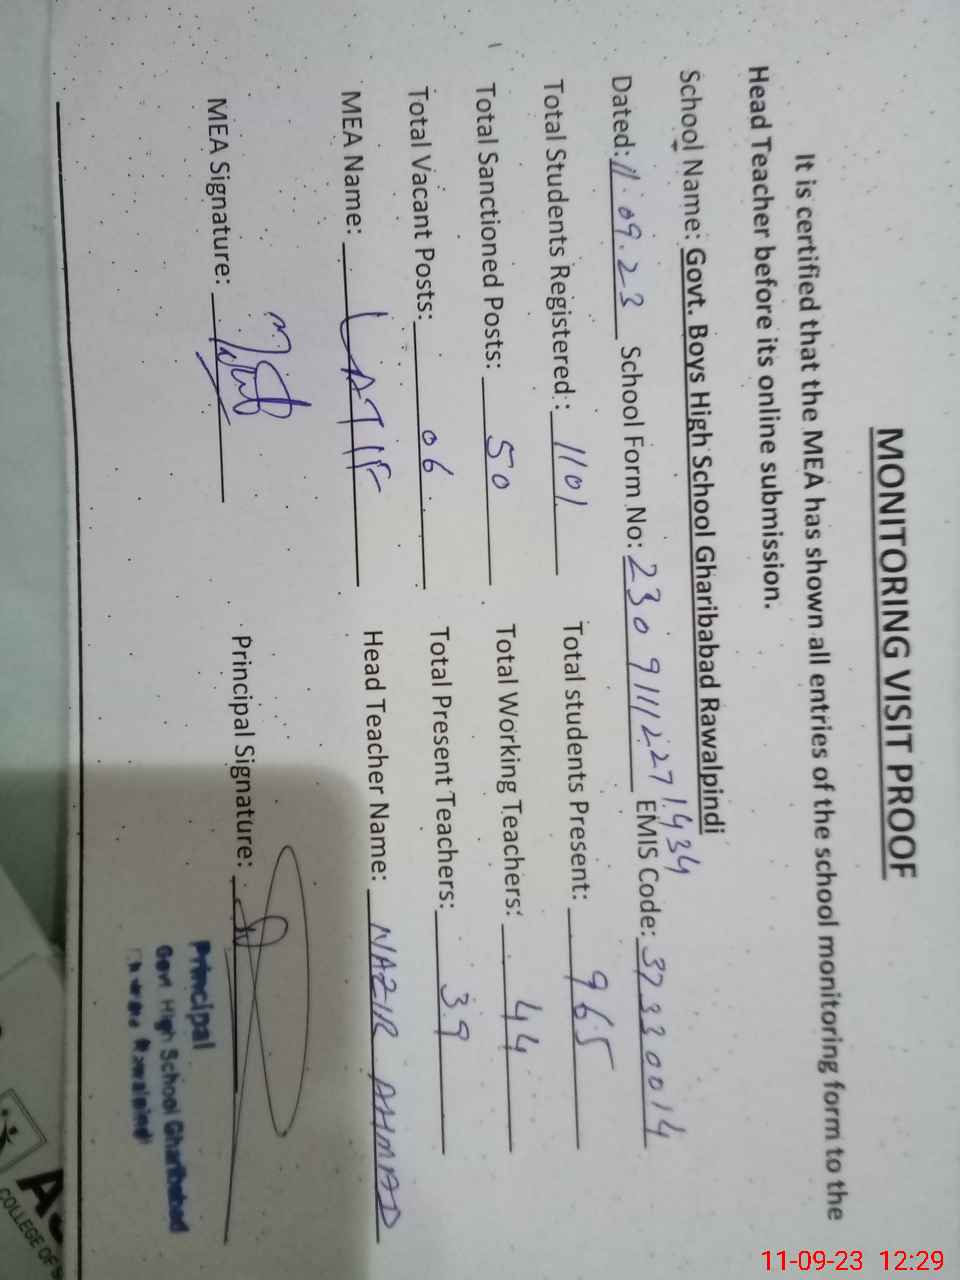 MONITORING VISIT PROOF
It is certified that the MEA has shown all entries of the school monitoring form to the
Head Teacher before its online submission.
School Name: Govt. Boys High School Gharibabad Rawalpindi
Dated: 11.09.23 School Form No: 23091112271434 EMIS Code: 37330014
Total Students Registered : 1101 Total students Present: 965
Total Sanctioned Posts: 50 Total Working Teachers: 44
Total Vacant Posts: 06 Total Present Teachers: 39
MEA Name: LATIF Head Teacher Name: NAZIR AHMAD
MEA Signature: Principal Signature:
Principal
Govt High School Gharibabad
Rawalpindi
COLLEGE OF
11-09-23 12:29